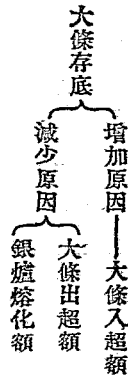 大條存底
增加原因
大條入超額
減少原因
大條出超額
銀爐熔化額